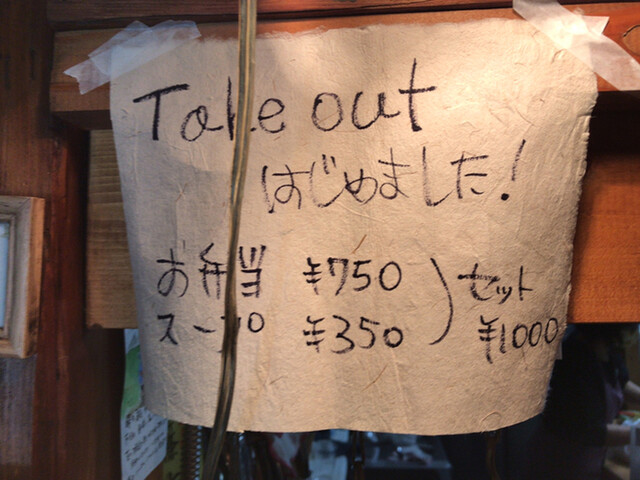 Take out
はじめました!
お弁当 ¥750
スープ ¥350
セット
¥1000